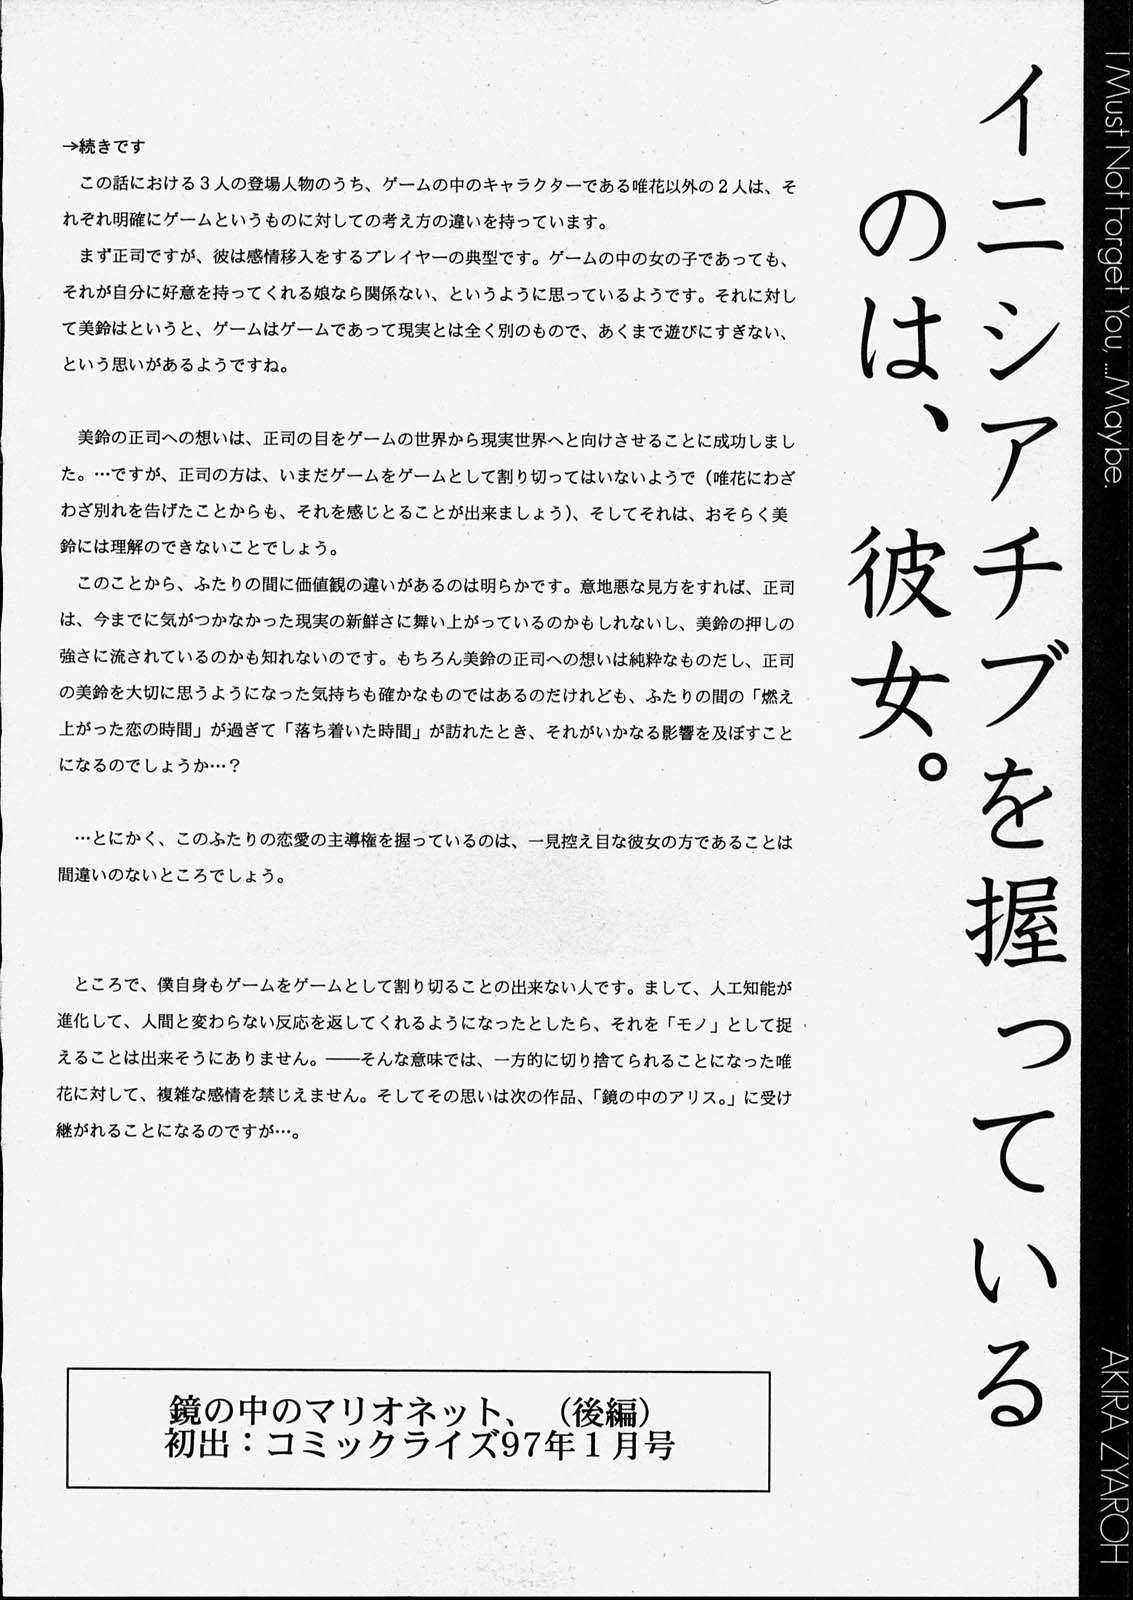 I Must Not Forget You, ...Maybe.
AKIRA ZYAROH
イニシアチブを握っている
のは、彼女。
→続きです
　この話における３人の登場人物のうち、ゲームの中のキャラクターである唯花以外の２人は、そ
れぞれ明確にゲームというものに対しての考え方の違いを持っています。
　まず正司ですが、彼は感情移入をするプレイヤーの典型です。ゲームの中の女の子であっても、
それが自分に好意を持ってくれる娘なら関係ない、というように思っているようです。それに対し
て美鈴はというと、ゲームはゲームであって現実とは全く別のもので、あくまで遊びにすぎない、
という思いがあるようですね。
　美鈴の正司への想いは、正司の目をゲームの世界から現実世界へと向けさせることに成功しまし
た。…ですが、正司の方は、いまだゲームをゲームとして割り切ってはいないようで（唯花にわざ
わざ別れを告げたことからも、それを感じとることが出来ましょう）、そしてそれは、おそらく美
鈴には理解のできないことでしょう。
　このことから、ふたりの間に価値観の違いがあるのは明らかです。意地悪な見方をすれば、正司
は、今までに気がつかなかった現実の新鮮さに舞い上がっているのかもしれないし、美鈴の押しの
強さに流されているのかも知れないのです。もちろん美鈴の正司への想いは純粋なものだし、正司
の美鈴を大切に思うようになった気持ちも確かなものではあるのだけれども、ふたりの間の「燃え
上がった恋の時間」が過ぎて「落ち着いた時間」が訪れたとき、それがいかなる影響を及ぼすこと
になるのでしょうか…？
　…とにかく、このふたりの恋愛の主導権を握っているのは、一見控え目な彼女の方であることは
間違いのないところでしょう。
　ところで、僕自身もゲームをゲームとして割り切ることの出来ない人です。まして、人工知能が
進化して、人間と変わらない反応を返してくれるようになったとしたら、それを「モノ」として捉
えることは出来そうにありません。――そんな意味では、一方的に切り捨てられることになった唯
花に対して、複雑な感情を禁じえません。そしてその思いは次の作品、「鏡の中のアリス。」に受け
継がれることになるのですが…。
鏡の中のマリオネット、（後編）
初出：コミックライズ97年１月号